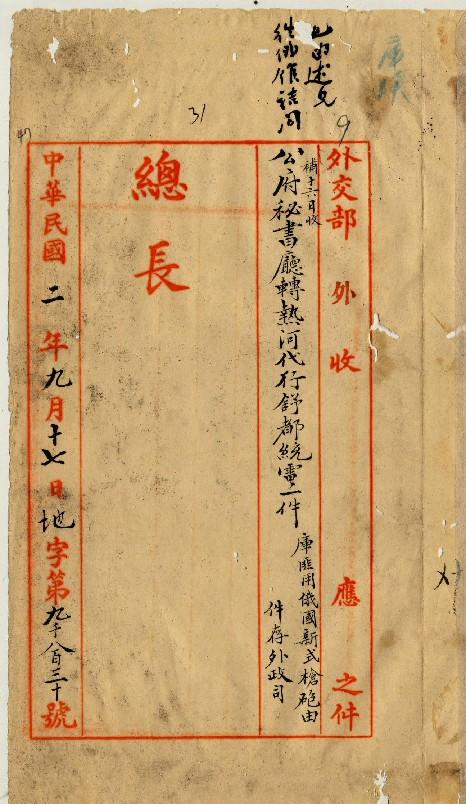 庫
外交部外收應之件
補十六日收
公府秘書廳轉熱河代行舒都統電二件
庫匪用俄國新式槍砲由
件存外政司
總長
中華民國二年九月十七日地字第九千八百三十號
31
9